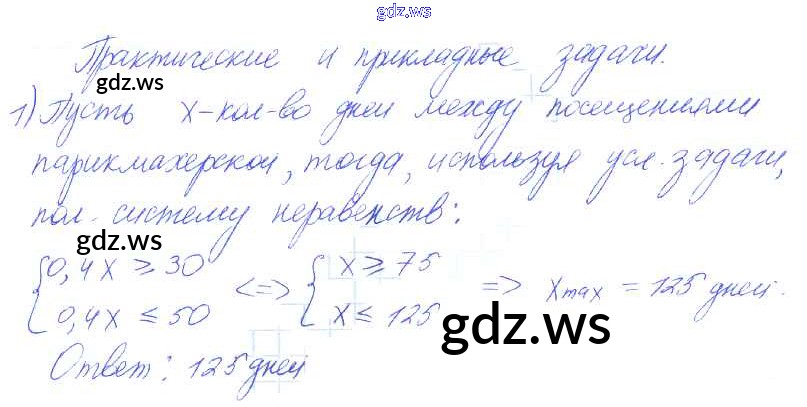 gdz.ws
Практические и прикладные задачи.
gdz.ws
1) Пусть x – кол-во дней между посещениями
парикмахерской, тогда, используя усл. задачи,
gdz.ws
пол. систему неравенств:
gdz.ws
{0,4x ≥ 30 <=> {x ≥ 75 => xmax = 125 дней.
0,4x ≤ 50 x ≤ 125
gdz.ws
Ответ: 125 дней